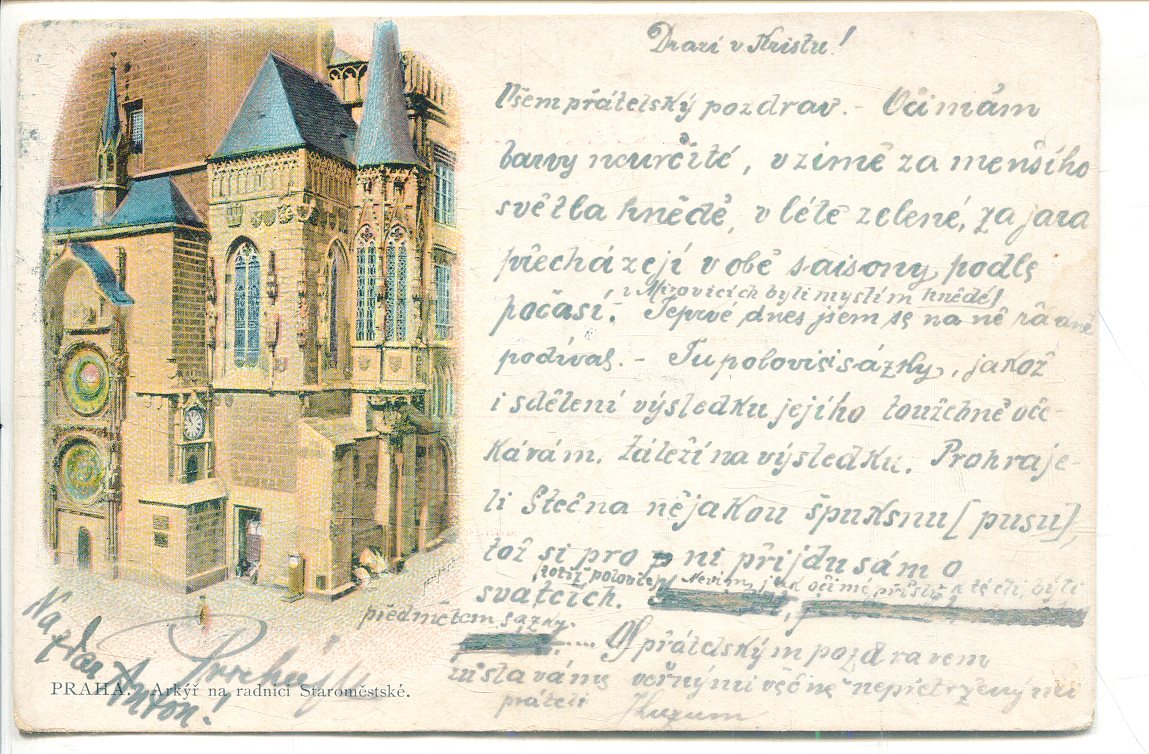 Drazí v Kristu!
Všem přátelský pozdrav. - Oči mám
barvy neurčité, v zimě za menšího
světla hnědé, v létě zelené, za jara
přecházejí v obě saisony podle
v Mirovicích byli myslím hnědé!
počasí. - Teprve dnes jsem se na ně
podíval. - Tu polovici sázky, jakož
i sdělení výsledku jejího toužebně oče-
kávám. Záleží na výsledku. Prohraje-
li Slečna nějakou špuksnu [pusu],
tož si pro ni přijdu sám o
totiž polovice Nevím, jak oči mé přišly k té cti, býti
svátcích.
předmětem sázky.
S přátelským pozdravem
zůstáváme věrnými věčně nepřetrženými
přáteli
Na zdar Anton!
PRAHA. Arkýř na radnici Staroměstské.